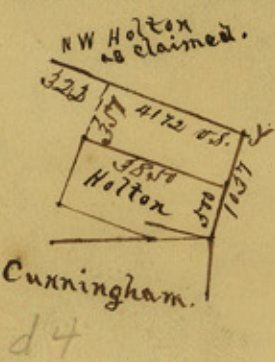 NW Holton
as claimed.
323
357
4172 v.s.
3850
Holton
500
1057
Cunningham.
d 4